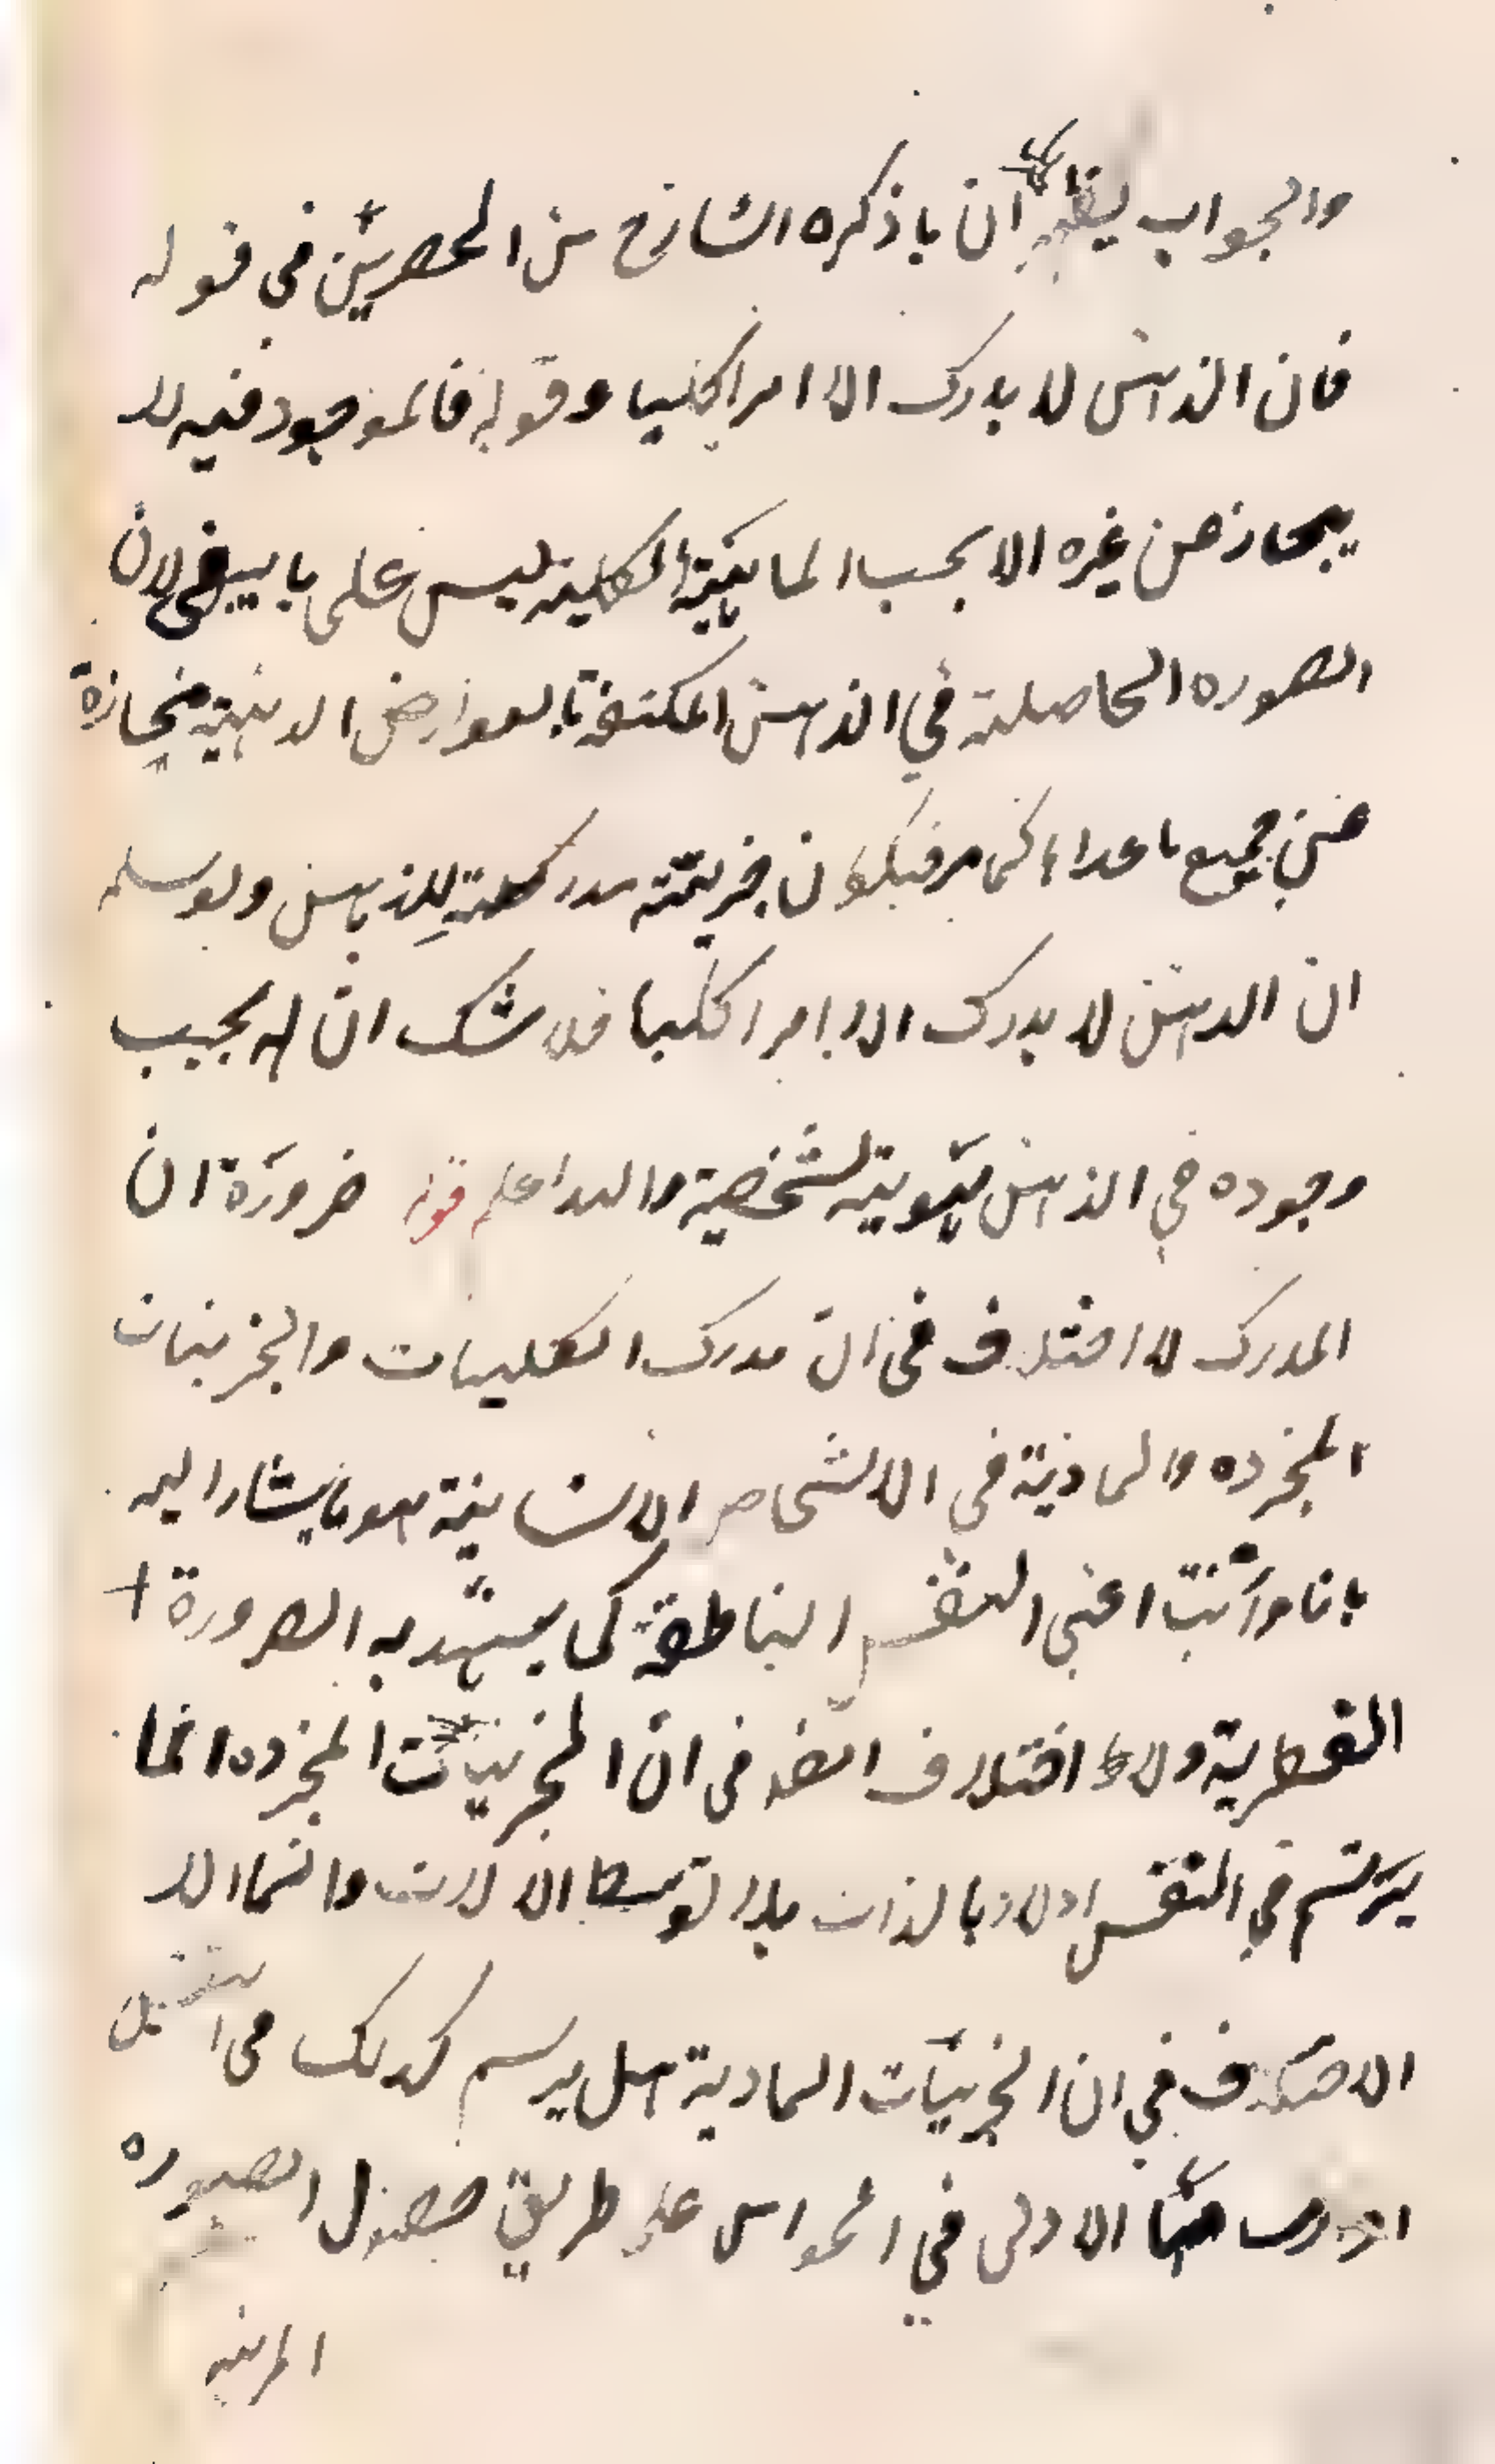 والجواب يظهر لك ان ما ذكره الشارح من الحصرين في قوله
فان الذهن لا يدرك الا امرا كليا وقوله فالموجود فيه لا
ينحاز عن غيره الا بحسب الماهية الكلية ليس على ما ينبغي لان
الصوره الحاصلة في الذهن المكتنفة بالعوارض الذهنية منحازة
عن جميع ما عداه كما مر فيكون جزئية مدركة للذهن ولو سلم
ان الذهن لا يدرك الا امرا كليا فلا شك ان له بحسب
وجوده في الذهن هوية شخصية والله اعلم قوله ضرورة ان
المدرك لا اختلاف في ان مدرك الكليات والجزئيات
المجرده والمادية في الاشخاص الانسانية هو ما يشار اليه
بانا وانت اعني النفس الناطقة كما يشهد به الضرورة
الفطرية ولا اختلاف ايضا في ان الجزئيات المجرده انما
يرتسم في النفس اولا وبالذات بلا توسط الالات وانما
الاختلاف في ان الجزئيات المادية هل يرسم كذلك في النفس
ارتسامها الاولى في الحواس على طريق حصول الصوره
المرئية